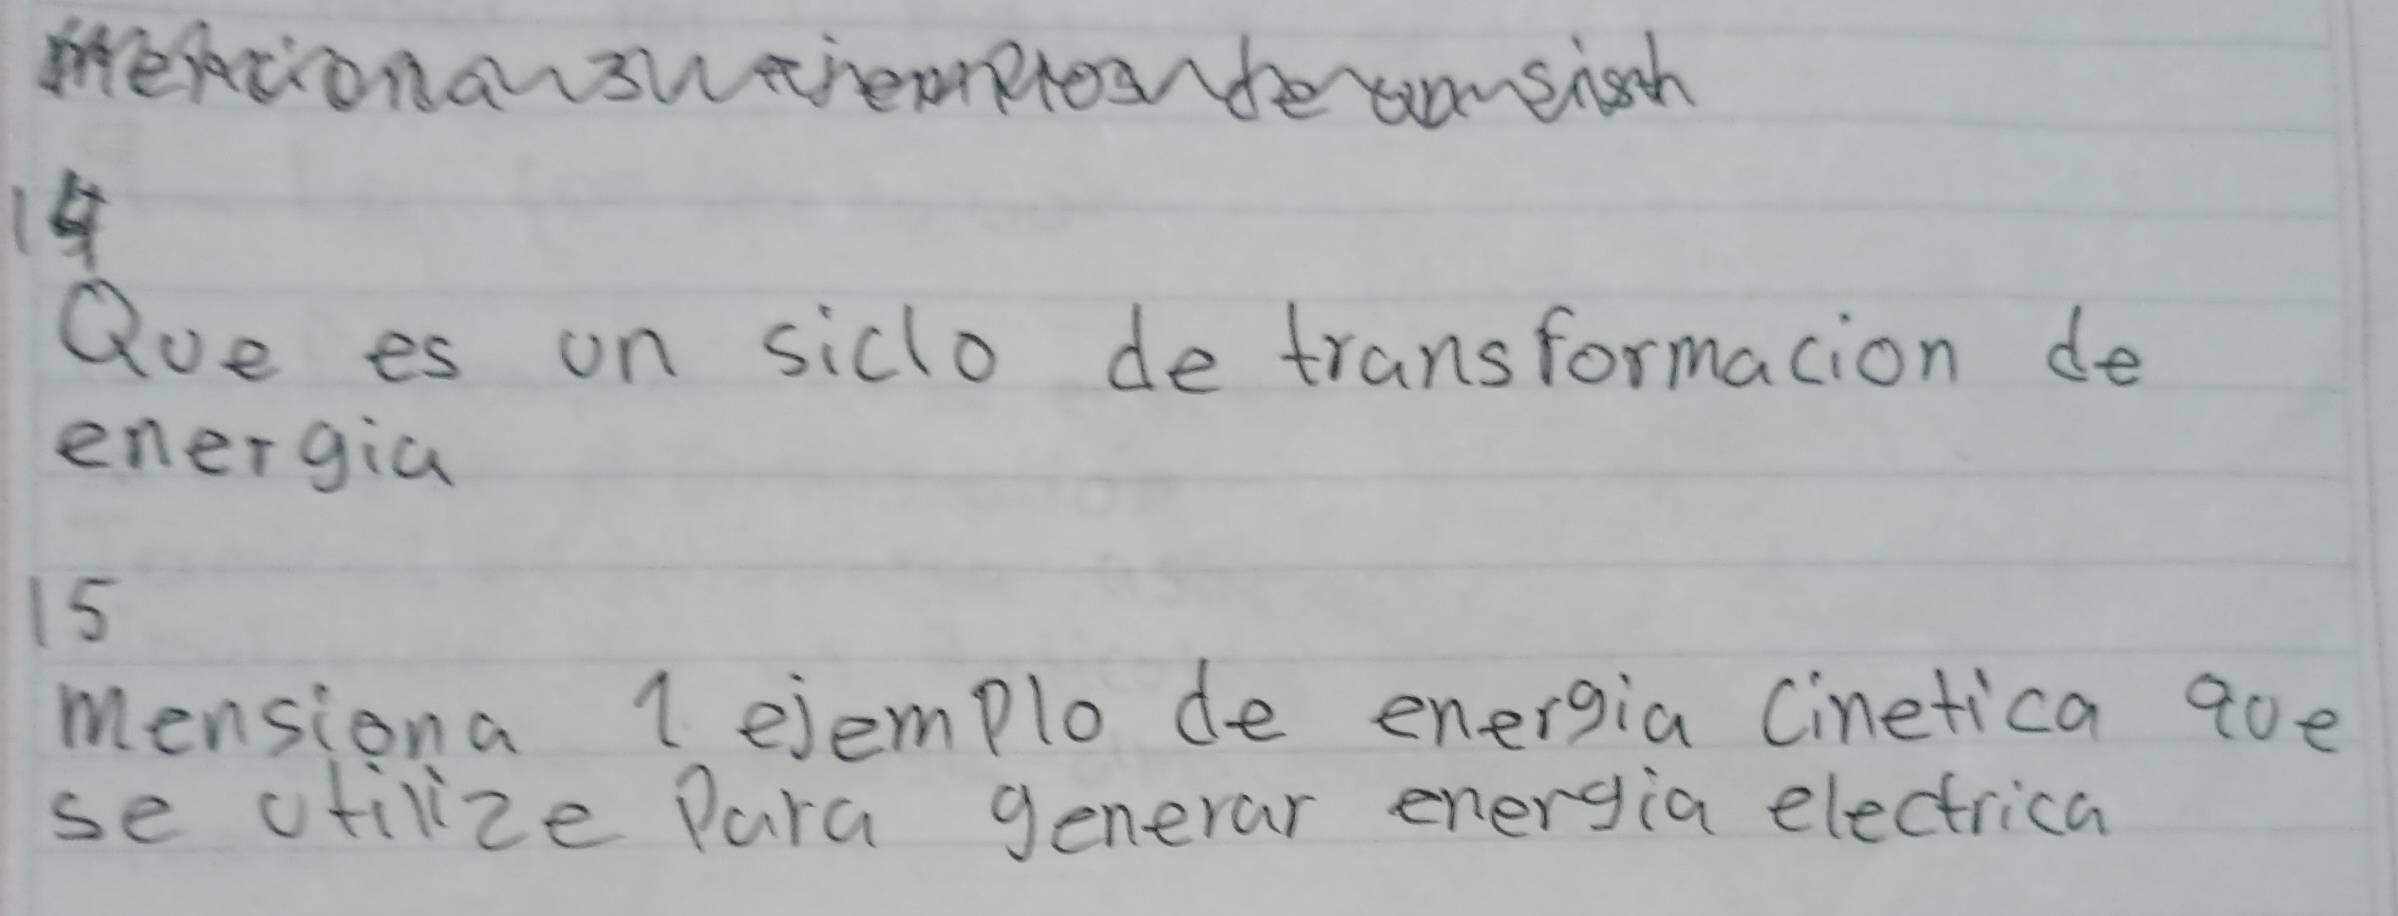 14
Que es un siclo de transformacion de
energia
15
mensiona 1 ejemplo de energia cinetica que
se utilize para generar energia electrica